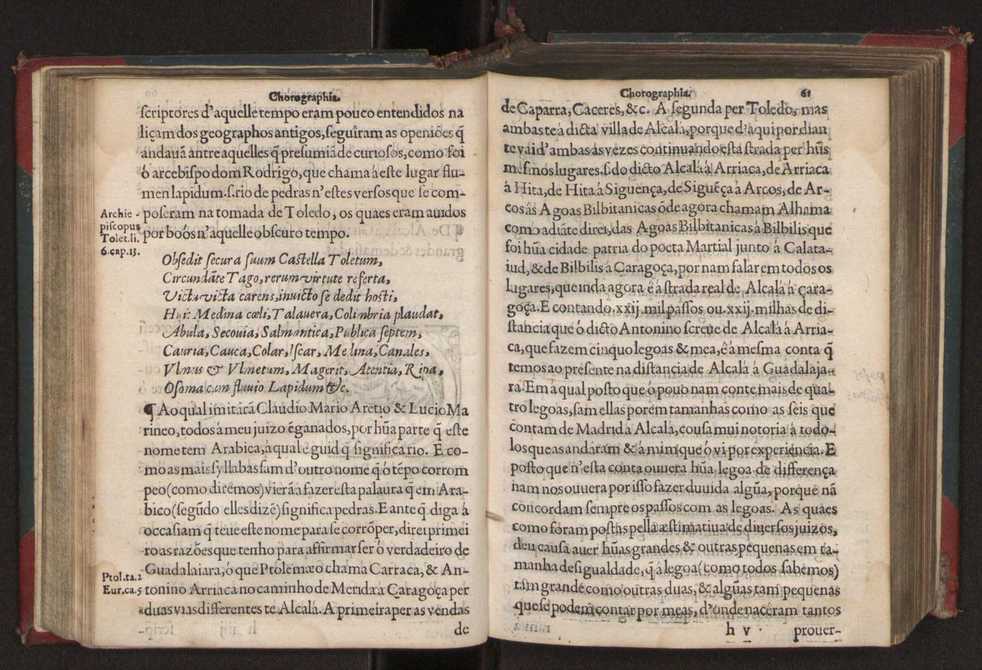 Chorographia.
scriptores d'aquelle tempo eram pouco entendidos na
liçam dos geographos antigos, seguîram as openiões q̃
andauã antre aquelles q̃ presumiã de curiosos, como foi
ò arcebispo dom Rodrigo, que chama à este lugar flu-
men lapidum. s. rio de pedras n'estes versos que se com-
poseram na tomada de Toledo, os quaes eram auidos
por boõs n'aquelle obscuro tempo.
Archie-
piscopus
Tolet.li.
6.cap.23.
Obsedit secura suum Castella Toletum,
Circundãte Tago, rerum virtute referta,
Victu victa carens, inuicto se dedit hosti,
Huic Medina cœli, Talauera, Colimbria plaudat,
Abula, Secouia, Salmantica, Publica septem,
Cauria, Cauca, Colar, Iscar, Medina, Canales,
Vlmus & Vlmetum, Magerit, Atentia, Ripa,
Osoma cum fluuio Lapidum &c.
¶ Ao qual imitàrã Claudio Mario Aretio & Lucio Ma
rineo, todos à meu juizo ẽganados, por hũa parte q̃ este
nome tem Arabica, à qual é guid q̃ significa rio. E co-
mo as mais syllabas sam d'outro nome q̃ ò tẽpo corrom
peo (como diremos) vierã à fazer esta palaura q̃ em Ara-
bico (segũdo elles dizẽ) significa pedras. E ante q̃ diga à
occasiam q̃ teue este nome para se corrõper, direi primei
ro as razões que tenho para affirmar ser ò verdadeiro de
Guadalaiara, ò que Ptolemæo chama Carraca, & An-
tonino Arriaca no caminho de Merida à Caragoça per
duas vias differentes te Alcalà. A primeira per as vendas
Ptol.ta.2
Eur.ca.5
h iiij
de
Chorographia.
61
de Caparra, Caceres, &c. A segunda per Toledo, mas
ambas te à dicta villa de Alcalà, porque d'aqui por dian
te vai d'ambas as vezes continuando esta strada per hũs
mesmos lugares. s. do dicto Alcalà à Arriaca, de Arriaca
à Hita, de Hita à Siguença, de Siguẽça à Arcos, de Ar-
cos às Agoas Bilbitanicas õde agora chamam Alhama
como adiãte direi, das Agoas Bilbitanicas à Bilbilis que
foi hũa cidade patria do poeta Martial junto à Calata-
iud, & de Bilbilis à Caragoça, por nam falar em todos os
lugares, que inda agora é à strada real de Alcalà à çara-
goça. E contando .xxij. mil passos ou .xxij. milhas de di-
stancia que ò dicto Antonino screue de Alcalà à Arria-
ca, que fazem cinquo legoas & mea, é à mesma conta q̃
temos ao presente na distancia de Alcalà à Guadalaja-
ra. Em à qual posto que ò pouo nam conte mais de qua-
tro legoas, sam ellas porém tamanhas como as seis que
contam de Madrid à Alcalà, cousa mui notoria à todo-
los que as andaram & à mim que ò vi por experiẽcia. E
posto que n'esta conta ouuera hũa legoa de differença
nam nos ouuera por isso fazer duuida algũa, porque nã
concordam sempre os passos com as legoas. As quaes
como fôram postas pella æstimatiua de diuersos juizos,
deu causa auer hũas grandes & outras pequenas em ta-
manha desigualdade, q̃ à legoa (como todos sabemos)
tam grande como outras duas, & algũas tam pequenas
que se podem contar por meas, d'onde naceram tantos
h v
prouer-